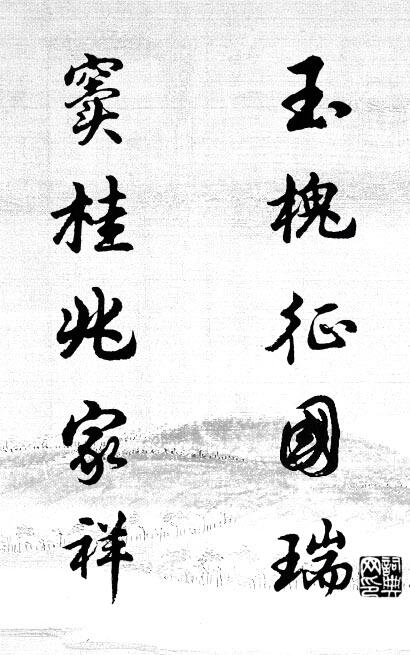 玉槐征國瑞
竇桂兆家祥
詞典网印